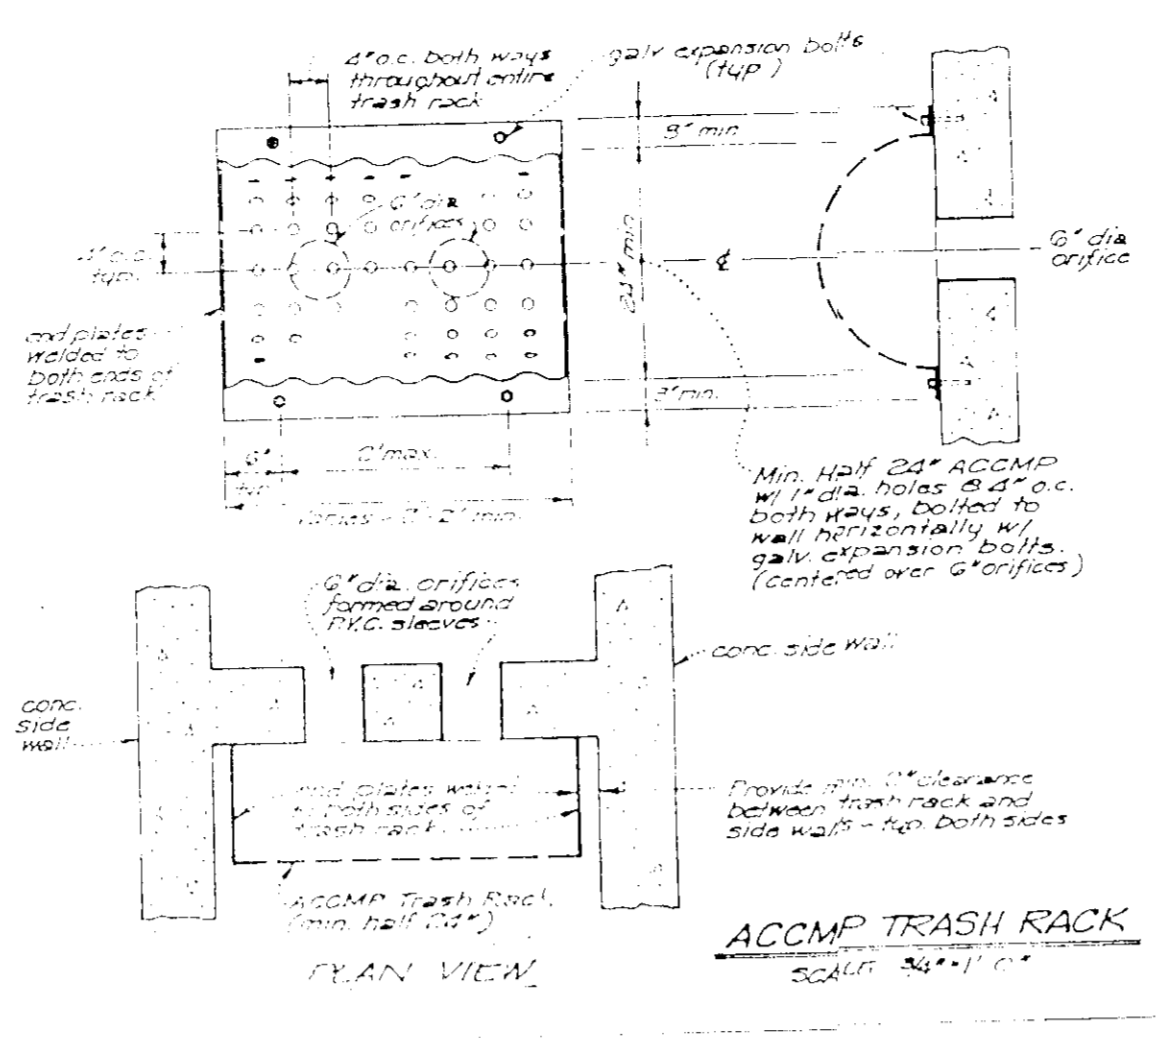 4" o.c. both ways
throughout entire
trash rack
galv expansion bolts
(typ)
8" min
6" dia
orifices
4" o.c.
typ.
24" min
℄
6" dia
orifice
end plates
welded to
both ends of
trash rack
min.
6"
typ
max.
Varies - min.
Min. Half 24" ACCMP
w/ 1" dia. holes @ 4" o.c.
both ways, bolted to
wall horizontally w/
galv. expansion bolts.
(centered over 6" orifices)
6" dia. orifices
formed around
P.V.C. sleeves
conc. side wall
conc.
side
wall
end plates
to both sides of
trash rack
Provide min. clearance
between trash rack and
side walls - typ. both sides
ACCMP Trash Rack
(min. half 24")
PLAN VIEW
ACCMP TRASH RACK
SCALE 3/4" = 1' 0"